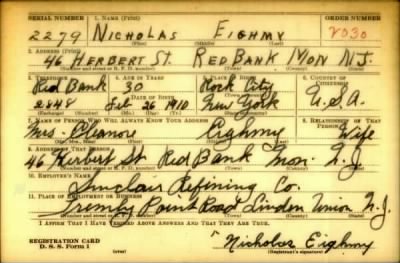 SERIAL NUMBER 1. NAME (Print) ORDER NUMBER
2279 NICHOLAS EIGHMY 2030
(First) (Middle) (Last)
2. ADDRESS (Print)
46 HERBERT ST. RED BANK MON N.J.
(Number and street or R. F. D. number) (Town) (County) (State)
3. TELEPHONE 4. AGE IN YEARS 5. PLACE OF BIRTH 6. COUNTRY OF CITIZENSHIP
Red Bank 30 Rock City
DATE OF BIRTH
2848 Feb 26 1910 New York U.S.A.
7. NAME OF PERSON WHO WILL ALWAYS KNOW YOUR ADDRESS 8. RELATIONSHIP OF THAT PERSON
Mrs. Eleanore Eighmy Wife
9. ADDRESS OF THAT PERSON
46 Herbert St Red Bank Mon. N.J.
(Number and street or R. F. D. number) (Town) (County) (State)
10. EMPLOYER'S NAME
Sinclair Refining Co.
11. PLACE OF EMPLOYMENT OR BUSINESS
Tremly Point Road Linden Union N.J.
(Number and street or R. F. D. number) (Town) (County) (State)
I AFFIRM THAT I HAVE VERIFIED ABOVE ANSWERS AND THAT THEY ARE TRUE.
REGISTRATION CARD
D. S. S. Form 1 (over) Nicholas Eighmy
(Registrant's signature)